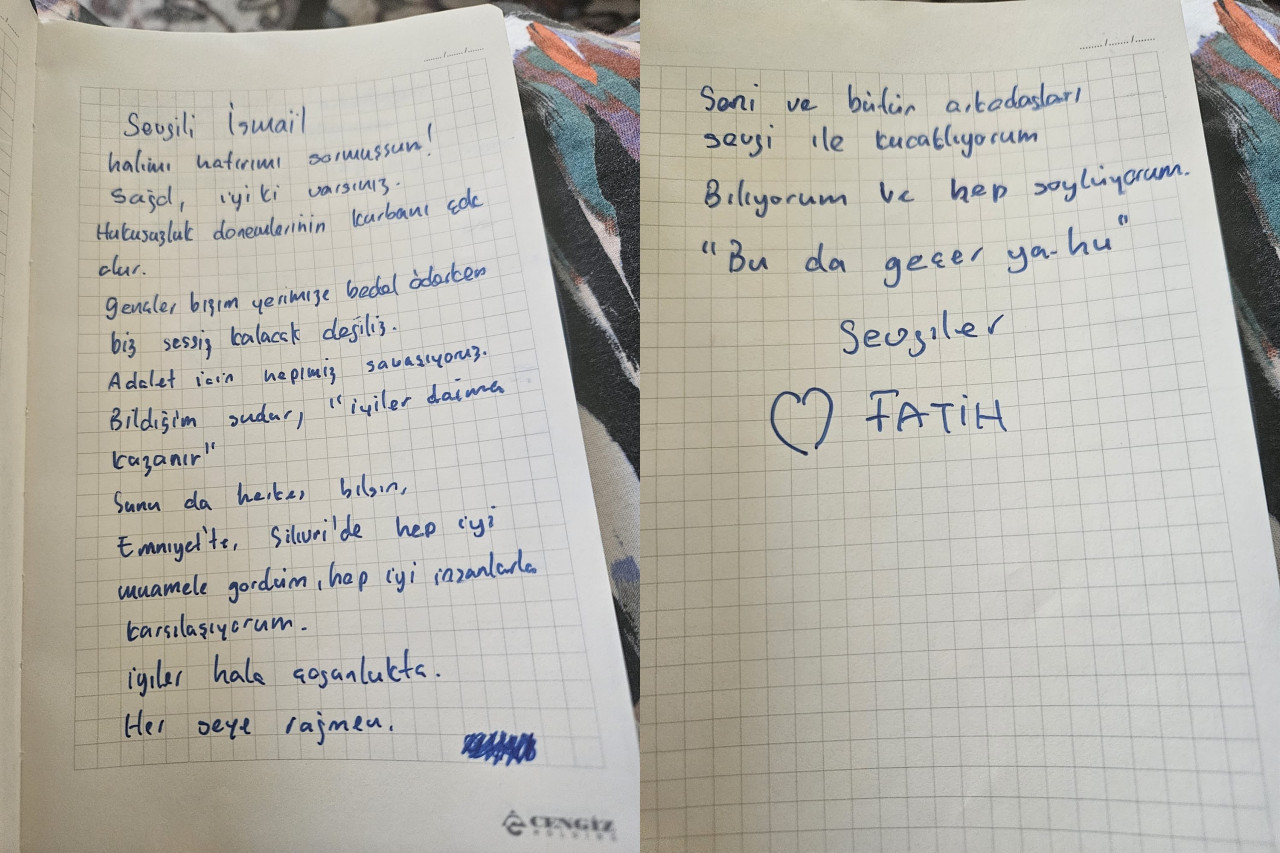 ...../...../.....
Sevgili İsmail
halimi hatırımı sormuşsun!
Sağol, iyi ki varsınız.
Hukusuzluk donemlerinin kurbanı çok
olur.
Gençler bizim yerimize bedel öderken
biz sessiz kalacak değiliz.
Adalet için hepimiz savaşıyoruz.
Bildiğim şudur, "iyiler daima
kazanır"
Şunu da herkes bilsin,
Emniyet'te, Silivri'de hep iyi
muamele gördüm, hep iyi insanlarla
karşılaşıyorum.
iyiler hala çoğunlukta.
Her şeye rağmen.
CENGİZ
HOLDİNG
...../...../.....
Seni ve bütün arkadaşları
sevgi ile kucaklıyorum
Biliyorum ve hep söylüyorum.
"Bu da geçer ya-hu"
Sevgiler
♡ FATİH